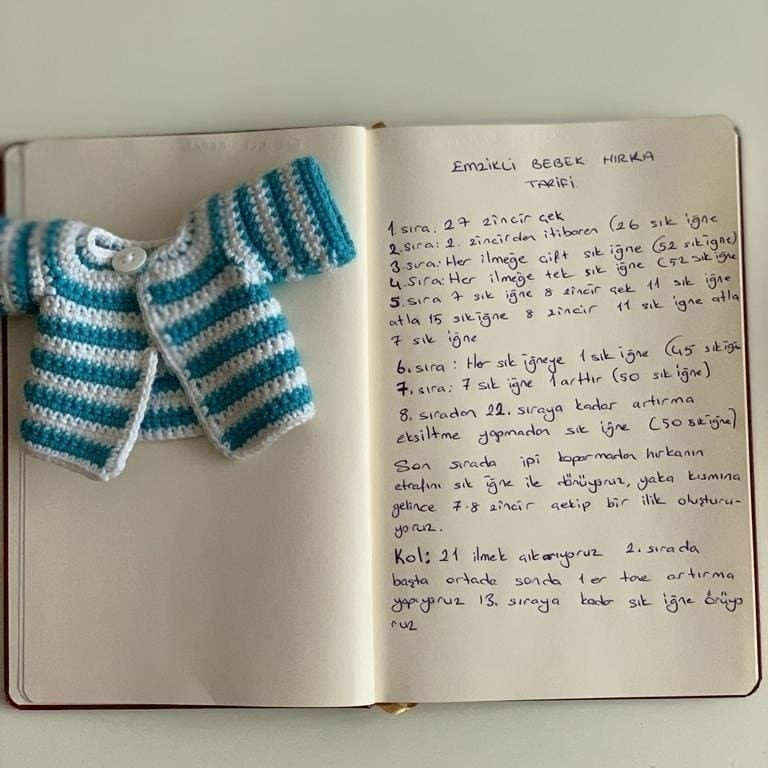 EMZİKLİ BEBEK HIRKA
TARİFİ
1. sıra. 27 zincir çek
2. sıra: 2. zincirden itibaren (26 sık iğne
3. sıra: Her ilmeğe çift sık iğne (52 sık iğne)
4. sıra: Her ilmeğe tek sık iğne (52 sık iğne
5. sıra 7 sık iğne 8 zincir çek 11 sık iğne
atla 15 sık iğne 8 zincir 11 sık iğne atla
7 sık iğne
6. sıra: Her sık iğneye 1 sık iğne (45 sık iğn
7. sıra: 7 sık iğne 1 arttır (50 sık iğne)
8. sıradan 22. sıraya kadar artırma
eksiltme yapmadan sık iğne (50 sık iğne)
Son sırada ipi koparmadan hırkanın
etrafını sık iğne ile dönüyoruz, yaka kısmına
gelince 7-8 zincir çekip bir ilik oluşturu-
yoruz.
Kol: 21 ilmek çıkarıyoruz 2. sırada
başta ortada sonda 1 er tane artırma
yapıyoruz 13. sıraya kadar sık iğne örüyo
ruz